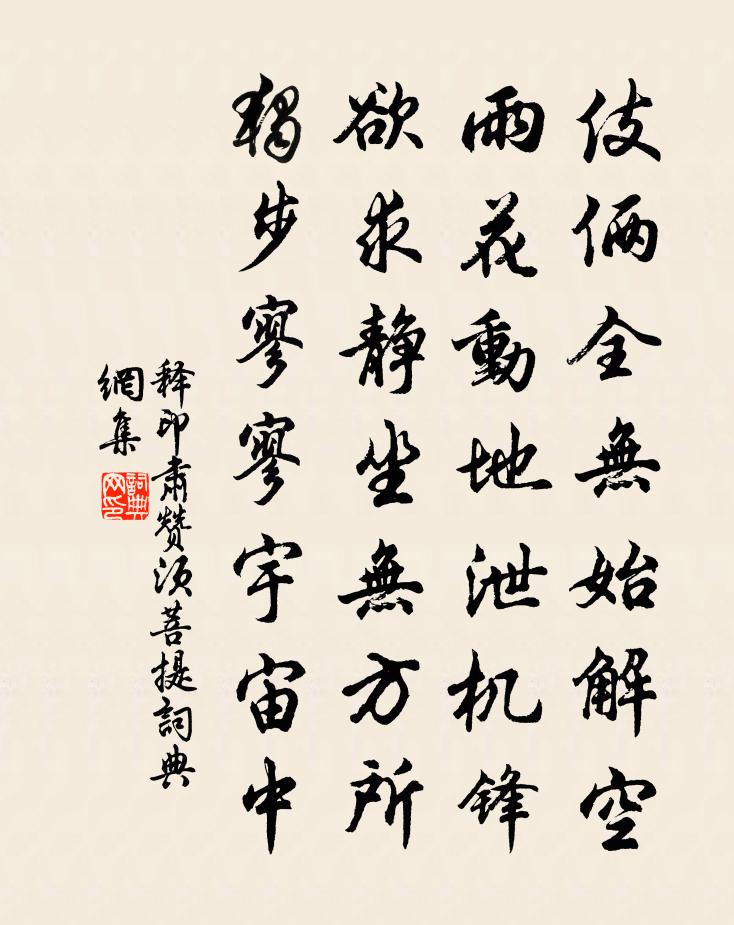 伎倆全無始解空
雨花動地泄机鋒
欲求靜坐無方所
獨步寥寥宇宙中
释印肅贊须菩提詞典
網集
詞典
网印